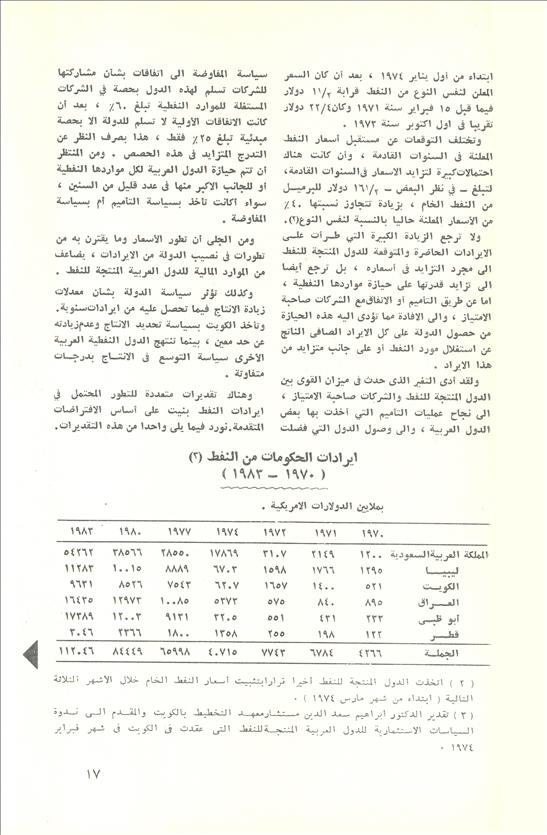 ابتداء من أول يناير ١٩٧٤ ، بعد أن كان السعر
المعلن لنفس النوع من النفط قرابة ١١/٢ دولار
فيما قبل ١٥ فبراير سنة ١٩٧١ وكان٢٢/٤ دولار
تقريبا في اول اكتوبر سنة ١٩٧٣ .
وتختلف التوقعات عن مستقبل أسعار النفط
المعلنة في السنوات القادمة ، وأن كانت هناك
احتمالات كبيرة لتزايد الاسعار في السنوات القادمة،
لتبلغ – في نظر البعض – ١٦١/٢ دولار للبرميل
من النفط الخام ، بزيادة تتجاوز نسبتها ٤٠٪
من الأسعار المعلنة حاليا بالنسبة لنفس النوع(٢).
ولا ترجع الزيادة الكبيرة التي طرأت على
الايرادات الحاضرة والمتوقعة للدول المنتجة للنفط
الى مجرد التزايد في أسعاره ، بل ترجع أيضا
الى تزايد قدرتها على حيازة مواردها النفطية ،
اما عن طريق التأميم أو الاتفاق مع الشركات صاحبة
الامتياز ، والى الافادة مما تؤدى اليه هذه الحيازة
من حصول الدولة على كل الايراد الصافي الناتج
عن استغلال مورد النفط أو على جانب متزايد من
هذا الايراد .
ولقد أدى التغير الذى حدث في ميزان القوى بين
الدول المنتجة للنفط والشركات صاحبة الامتياز ،
الى نجاح عمليات التأميم التي أخذت بها بعض
الدول العربية ، والى وصول الدول التي فضلت
سياسة المفاوضة الى اتفاقات بشأن مشاركتها
للشركات تسلم لهذه الدول بحصة في الشركات
المستغلة للموارد النفطية تبلغ ٦٠٪ ، بعد أن
كانت الاتفاقات الأولية لا تسلم للدولة الا بحصة
مبدئية تبلغ ٢٥٪ فقط ، هذا بصرف النظر عن
التدرج المتزايد في هذه الحصص . ومن المنتظر
أن تتم حيازة الدول العربية لكل مواردها النفطية
أو للجانب الاكبر منها في عدد قليل من السنين ،
سواء أكانت تأخذ بسياسة التأميم أم بسياسة
المفاوضة .
ومن الجلى أن تطور الأسعار وما يقترن به من
تطورات في نصيب الدولة من الايرادات ، يضاعف
من الموارد المالية للدول العربية المنتجة للنفط .
وكذلك تؤثر سياسة الدولة بشأن معدلات
زيادة الانتاج فيما تحصل عليه من ايرادات سنوية.
وتأخذ الكويت بسياسة تحديد الانتاج وعدم زيادته
عن حد معين ، بينما تنتهج الدول النفطية العربية
الأخرى سياسة التوسع في الانتاج بدرجات
متفاوتة .
وهناك تقديرات متعددة للتطور المحتمل في
ايرادات النفط بنيت على أساس الافتراضات
المتقدمة.نورد فيما يلى واحدا من هذه التقديرات.
ايرادات الحكومات من النفط (٣)
( ١٩٧٠ – ١٩٨٣ )
بملايين الدولارات الامريكية .
١٩٧٠ ١٩٧١ ١٩٧٢ ١٩٧٤ ١٩٧٧ ١٩٨٠ ١٩٨٣
المملكة العربية السعودية ١٢٠٠ ٢١٤٩ ٣١٠٧ ١٧٨٦٩ ٢٨٥٠٠ ٣٨٥٦٦ ٥٤٢٦٢
ليبيا ١٢٩٥ ١٧٦٦ ١٥٩٨ ٦٧٠٣ ٨٨٨٩ ١٠٠١٥ ١١٢٨٣
الكويت ٥٢١ ١٤٠٠ ١٦٥٧ ٦٢٠٧ ٧٥٤٣ ٨٥٢٦ ٩٦٣١
العراق ٨٩٥ ٨٤٠ ٥٧٥ ٥٣٧٣ ١٠٠٨٥ ١٢٩٧٣ ١٦٤٣٥
أبو ظبى ٢٣٣ ٤٣١ ٥٥١ ٣٢٠٥ ٩١٣١ ١٢٠٠٣ ١٧٣٨٩
قطر ١٢٢ ١٩٨ ٢٥٥ ١٣٥٨ ١٨٠٠ ٢٣٦٦ ٣٠٤٦
الجملة ٤٢٦٦ ٦٧٨٤ ٧٧٤٣ ٤٠٧١٥ ٦٥٩٩٨ ٨٤٤٤٩ ١١٢٠٤٦
( ٢ ) اتخذت الدول المنتجة للنفط أخيرا قرارا بتثبيت أسعار النفط الخام خلال الأشهر الثلاثة
التالية ( ابتداء من شهر مارس ١٩٧٤ ) .
( ٣ ) تقدير الدكتور ابراهيم سعد الدين مستشار معهد التخطيط بالكويت والمقدم الى ندوة
السياسات الاستثمارية للدول العربية المنتجة للنفط التى عقدت فى الكويت فى شهر فبراير
١٩٧٤ .
١٧